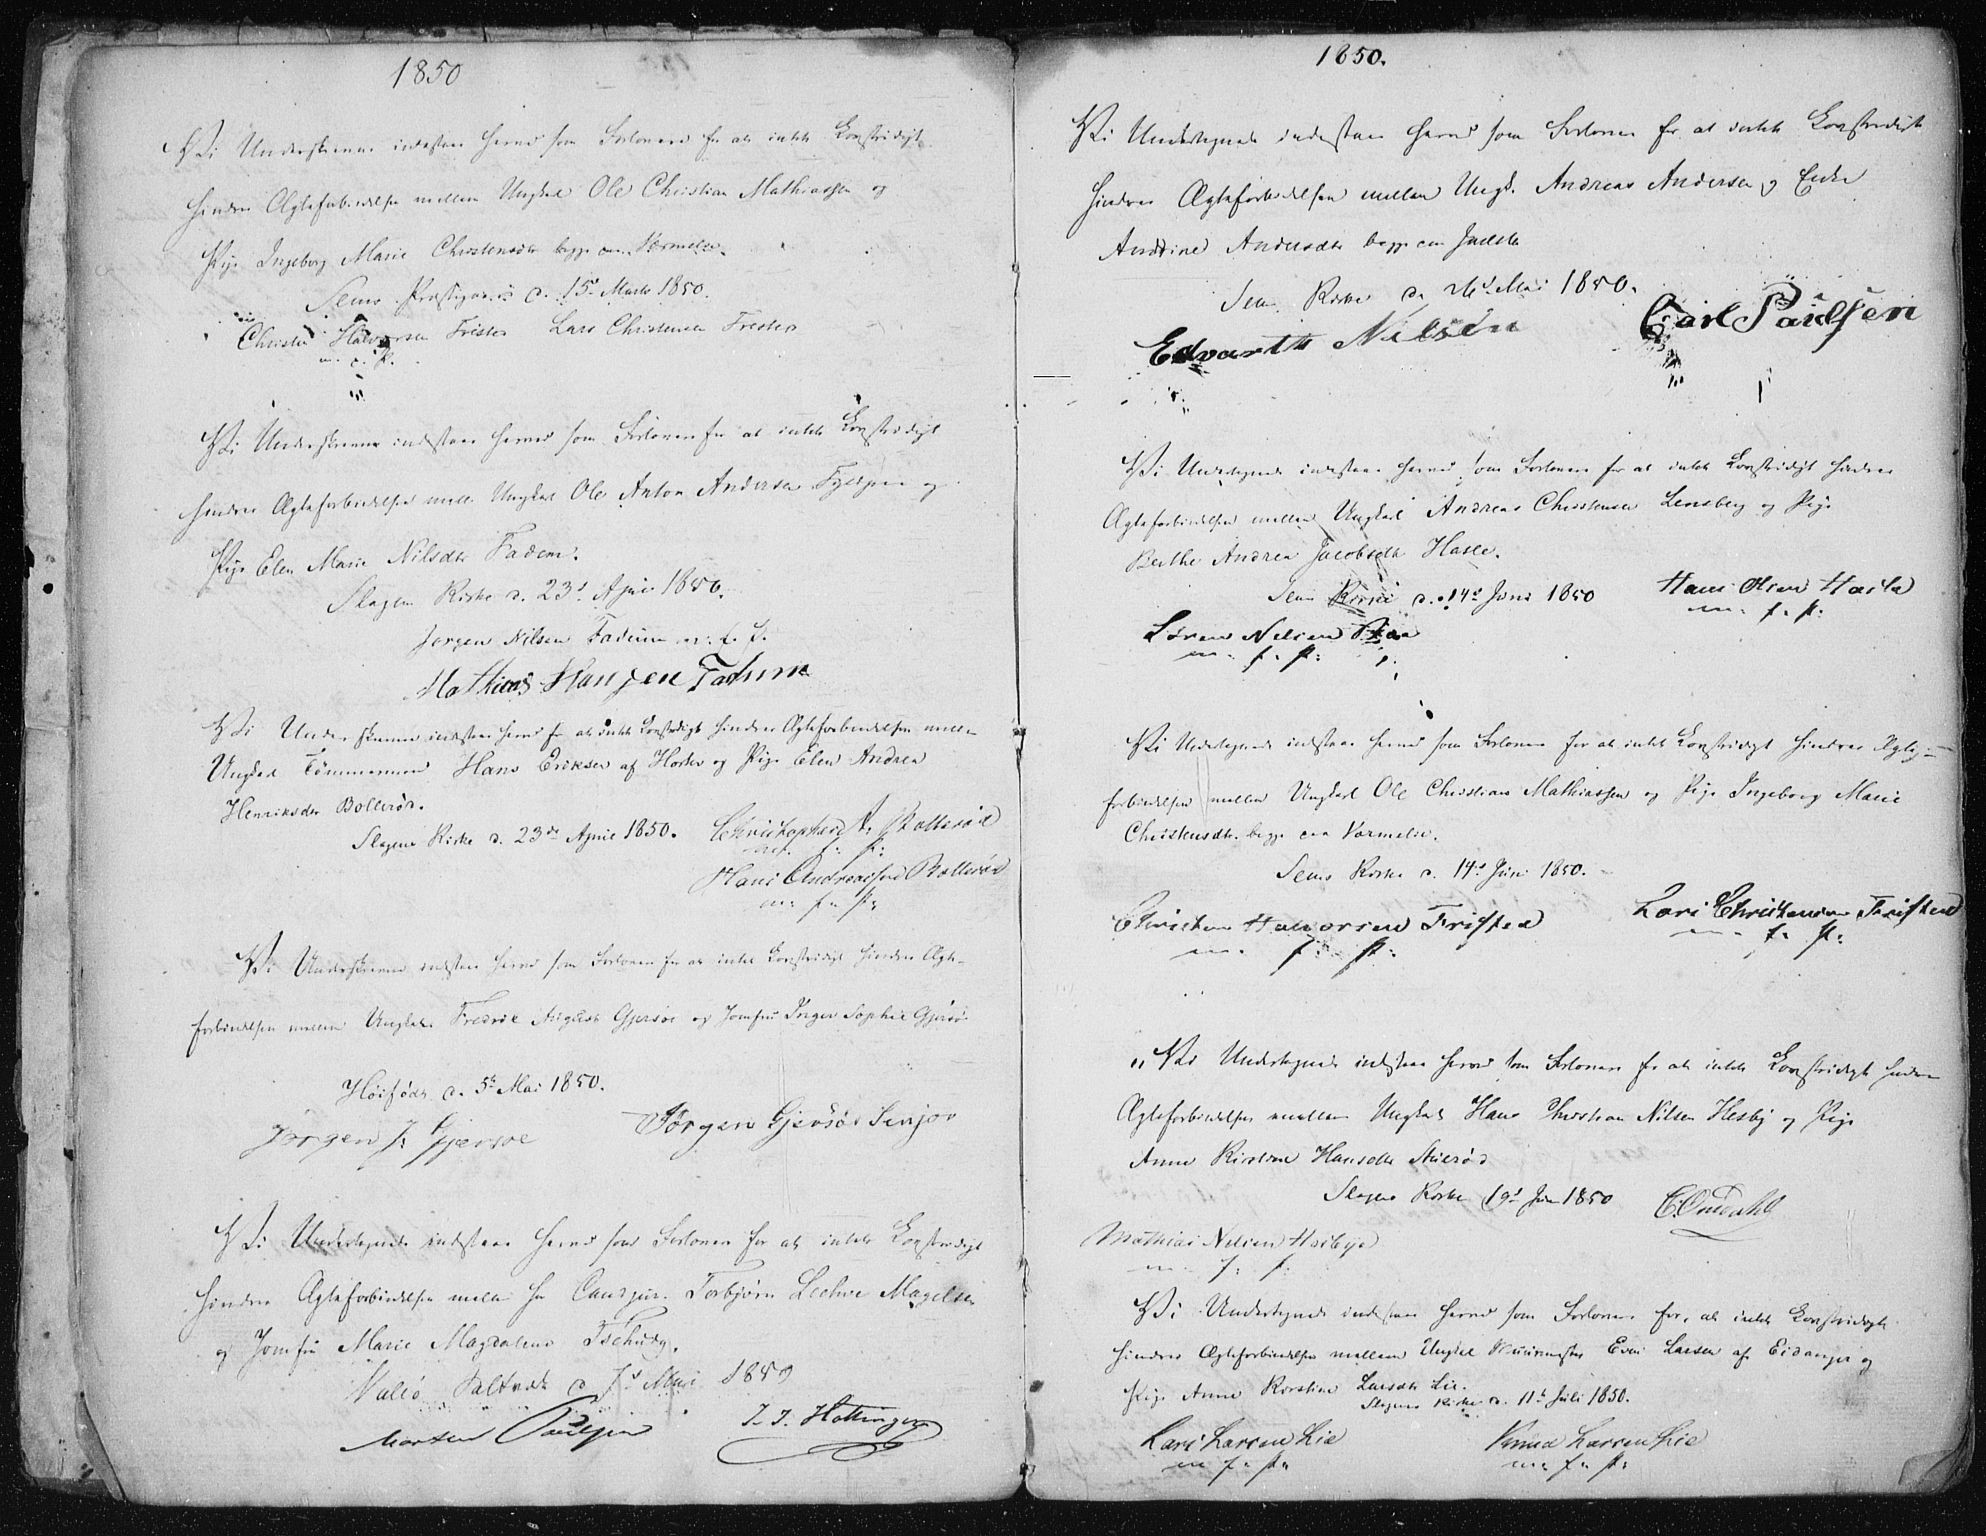 1850
Vi Underskrevne indestaae herved som Forlovere for at intet Lovstridigt
hindrer Ægteforbindelsen mellem Ungkarl Ole Christian Mathiassen og
Pige Ingeborg Marie Christensdtr begge paa Vermelie.
Sems Præstegaard d. 15d Marts 1850.
Christen Halvorsen Fristed Lars Christensen Fristed
m. p. P.
Vi Underskrevne indestaae herved som Forlovere for at intet Lovstridigt
hindrer Ægteforbindelsen mellem Ungkarl Ole Anton Andersen og
Pige Elen Marie Nilsdtr Fadum.
Slagens Kirke d. 23d April 1850.
Jørgen Nilsen Fadum m. f. P.
Mathias Hansen Fadum
Vi Underskrevne indestaae herved for at intet Lovstridigt hindrer Ægteforbindelsen mellem
Ungkarl Tømmermand Hans Eriksen af Horten og Pige Elen Andrea
Henriksdtr Bollerød.
Slagens Kirke d. 23de April 1850. Christopher A. Bollerød
m. f. P.
Hans Andreassen Bollerød
m. f. P.
Vi Underskrevne indestaae herved som Forlovere for at intet Lovstridigt hindrer Ægte-
forbindelsen mellem Ungkarl Fredrik August Gjersøe og Jomfru Inger Sophie Gjersøe
d. 5te Mai 1850.
Jørgen J. Gjersøe Jørgen Gjersøe Senjor
Vi Undertegnede indestaae herved som Forlovere for at intet Lovstridigt
hindrer Ægteforbindelsen mellem Hr Torbjørn Lechve Magelsen
og Jomfru Marie Magdalene Tschudy.
Vallø Saltværk d. 7d Mai 1850
Morten Poulsen I. I. Hottinger
1850.
Vi Undertegnede indestaae herved som Forlovere for at intet Lovstridigt
hindrer Ægteforbindelsen mellem Ungk. Andreas Andersen og Enke
Andrine Andersdtr begge paa
Sems Kirke d. Mai 1850.
Edvarth Nilsen Carl Paulsen
Vi Undertegnede indestaae herved som Forlovere for at intet Lovstridigt hindrer
Ægteforbindelsen mellem Ungkarl Andreas Christensen Lensberg og Pige
Berthe Andrea Jacobsdtr Hasle.
Sems Kirke d. 14d Juni 1850 Hans Olsen Hasle
m. f. P.
Søren Nelsen
m. f. P.
Vi Undertegnede indestaae herved som Forlovere for at intet Lovstridigt hindrer Ægte-
forbindelsen mellem Ungkarl Ole Christian Mathiassen og Pige Ingeborg Marie
Christensdtr. begge paa Vermelie.
Sems Kirke d. 14d Juni 1850.
Christen Halvorsen Fristed Lars Christensen Fristed
m. f. P. m. f. P.
Vi Undertegnede indestaae herved som Forlovere for at intet Lovstridigt hindrer
Ægteforbindelsen mellem Ungkarl Hans Christian Nilsen Hesby og Pige
Anne Kirstine Hansdtr
Slagens Kirke 19d Juni 1850
Mathias Nelsen Hesbye
m. f. P.
Vi Undertegnede indestaae herved som Forlovere for, at intet Lovstridigt
hindrer Ægteforbindelsen mellem Ungkarl Muurmester Even Larsen af Eidanger og
Pige Anne Kirstine Larsdtr Lie.
Slagens Kirke d. 11te Juli 1850.
Lars Larsen Lie Knud Larsen Lie
m. f. P. m. f. P.